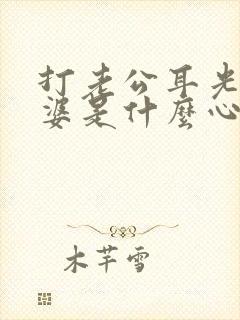 打老公耳光
婆是什麼心
木芊雪